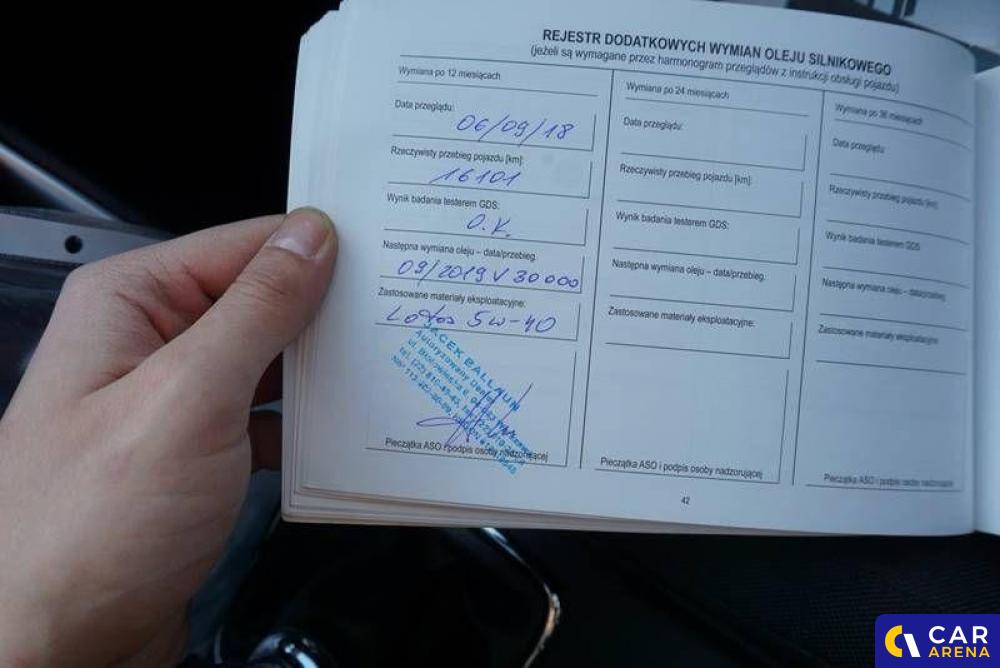 REJESTR DODATKOWYCH WYMIAN OLEJU SILNIKOWEGO
(jeżeli są wymagane przez harmonogram przeglądów z instrukcji obsługi pojazdu)
Wymiana po 12 miesiącach
Data przeglądu:
06/09/18
Rzeczywisty przebieg pojazdu [km]:
16101
Wynik badania testerem GDS:
O.K.
Następna wymiana oleju – data/przebieg.
09/2019 V 30 000
Zastosowane materiały eksploatacyjne:
Lotos 5W-40
JACEK BALLAUN
Autoryzowany Dealer
Pieczątka ASO i podpis osoby nadzorującej
Wymiana po 24 miesiącach
Data przeglądu:
Rzeczywisty przebieg pojazdu [km]:
Wynik badania testerem GDS:
Następna wymiana oleju – data/przebieg.
Zastosowane materiały eksploatacyjne:
Pieczątka ASO i podpis osoby nadzorującej
Wymiana po 36 miesiącach
Data przeglądu:
Rzeczywisty przebieg pojazdu [km]:
Wynik badania testerem GDS:
Następna wymiana oleju – data/przebieg.
Zastosowane materiały eksploatacyjne:
Pieczątka ASO i podpis osoby nadzorującej
42
CAR
ARENA